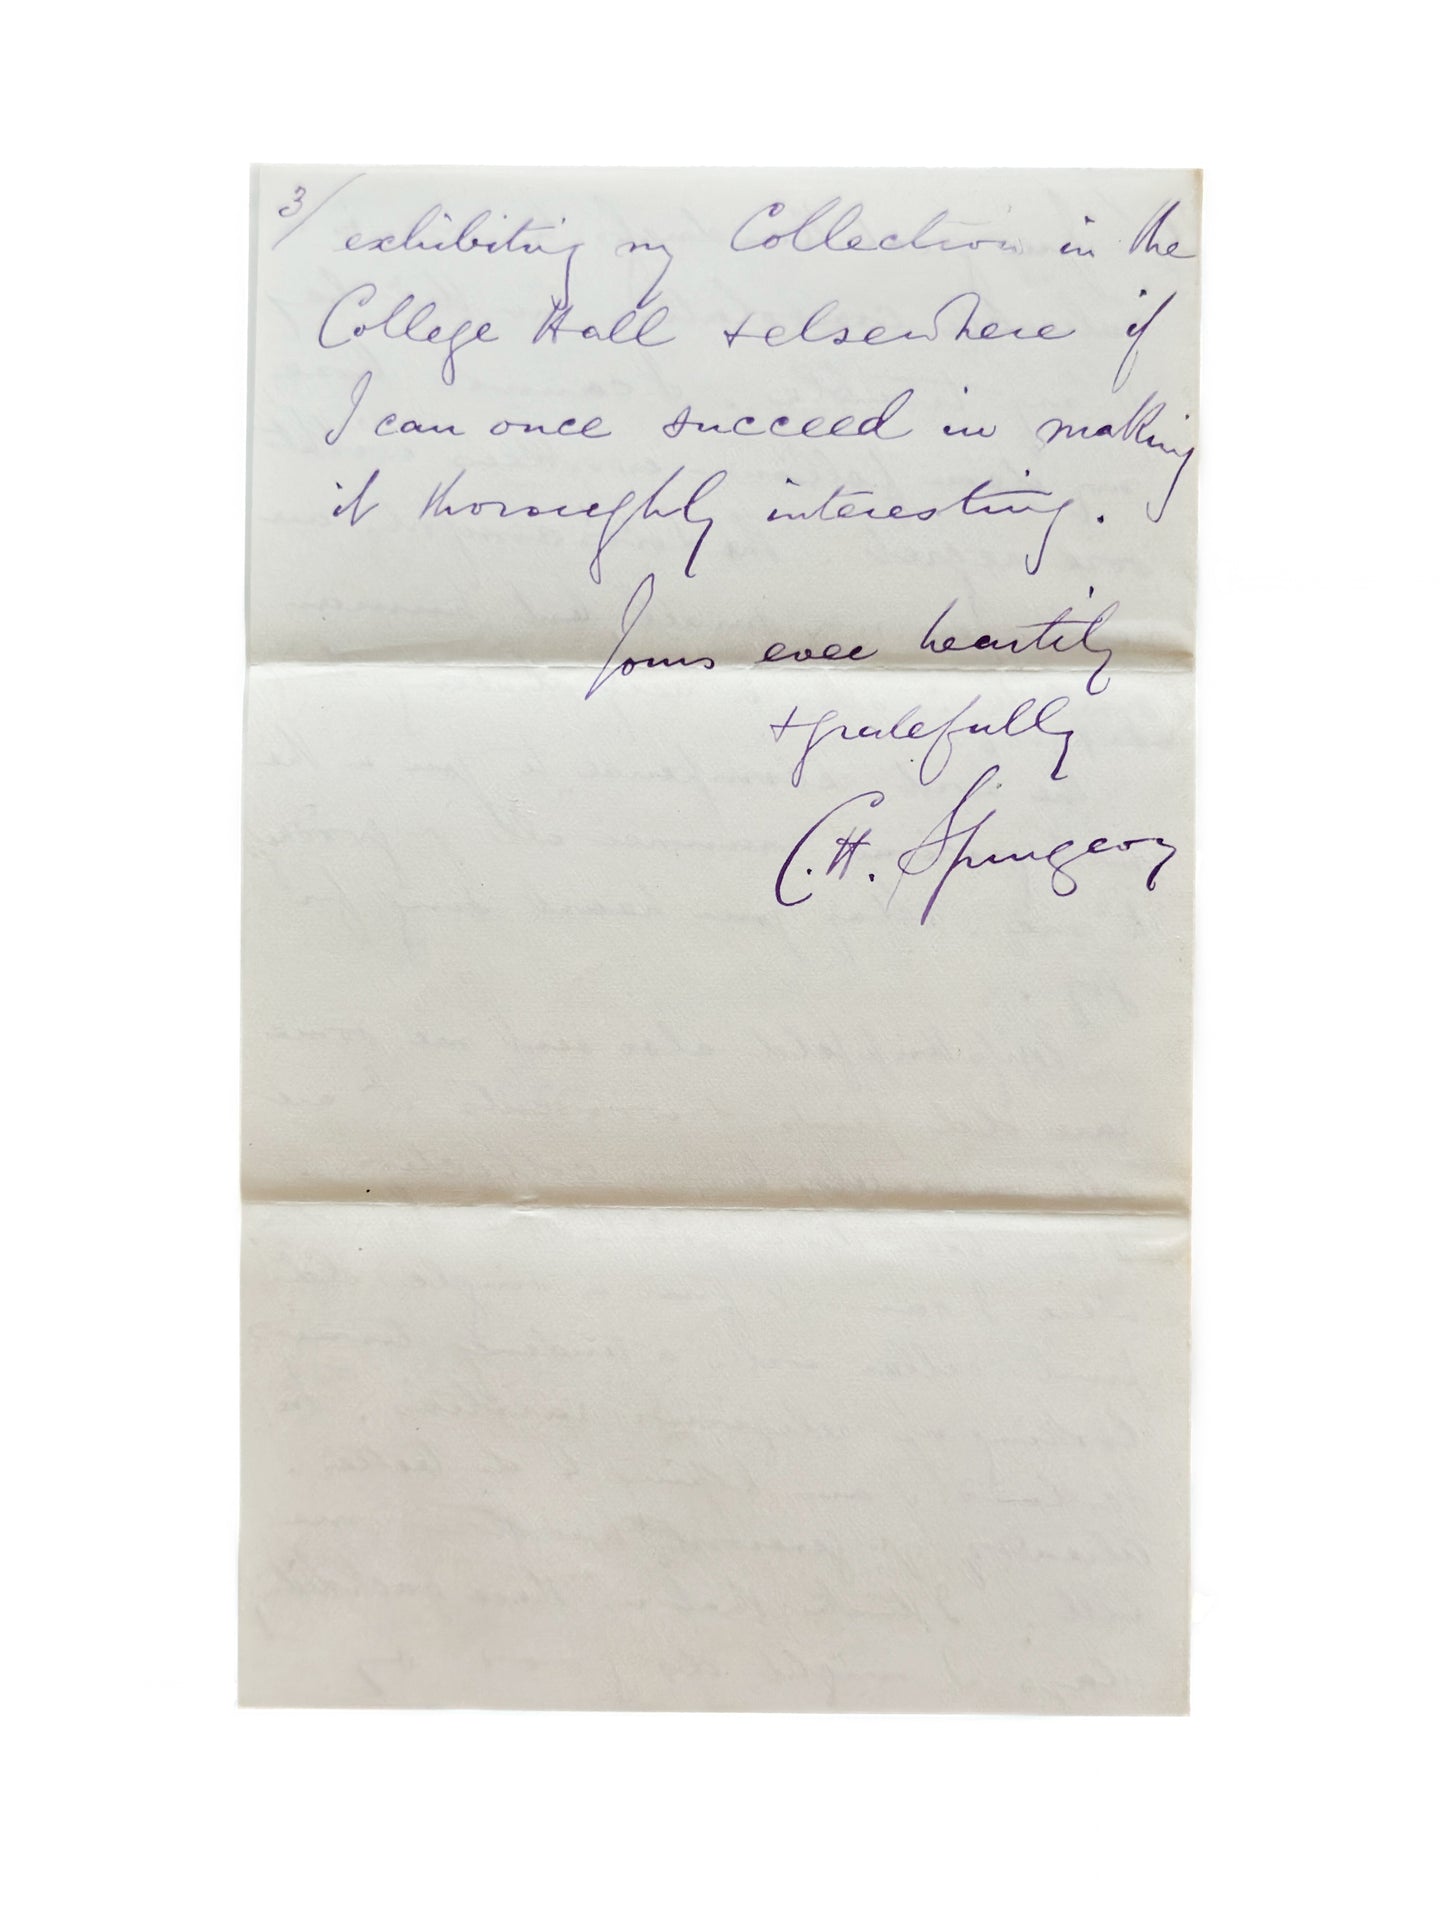 3/
exhibiting my Collection in the
College Hall & elsewhere if
I can once succeed in making
it thoroughly interesting.
Yours ever heartily
& gratefully
C. H. Spurgeon